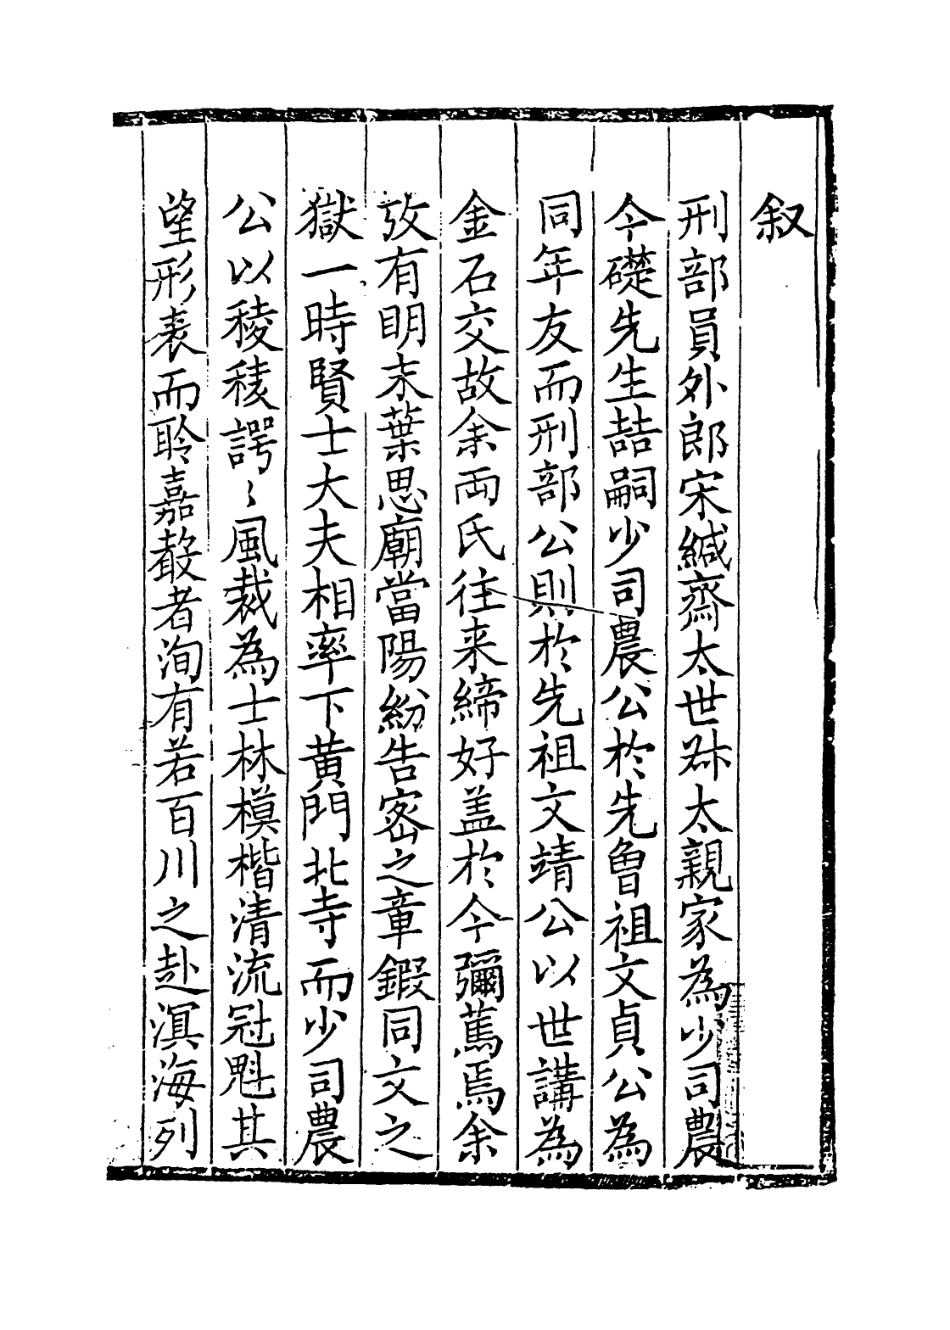 叙
刑部員外郎宋緘齋太世叔太親家為少司農
今礎先生喆嗣少司農公於先曾祖文貞公為
同年友而刑部公則於先祖文靖公以世講為
金石交故余両氏往来締好盖於今彌篤焉余
攷有明末葉思廟當陽紛告密之章鍜同文之
獄一時賢士大夫相率下黄門北寺而少司農
公以稜稜諤〻風裁為士林模楷清流冠魁其
望形表而聆嘉聲者洵有若百川之赴溟海列